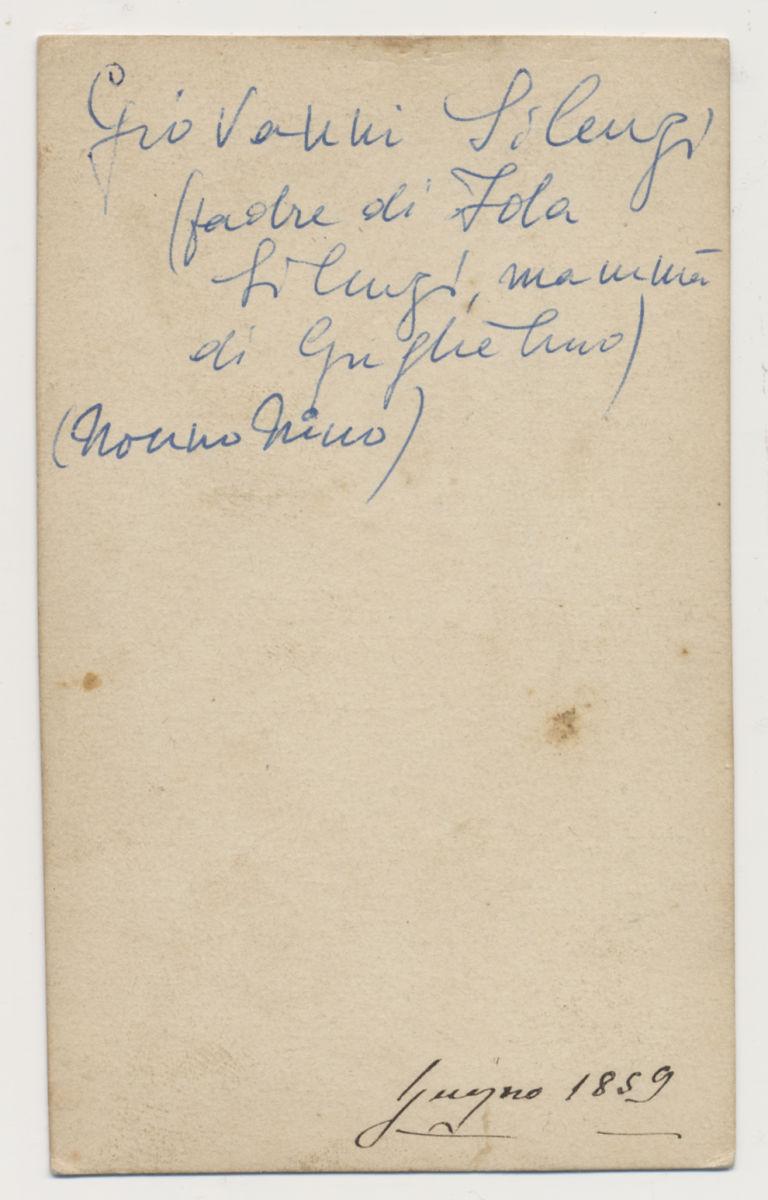 Giovanni Silenzi
(padre di Iola
Silenzi, mammà
di Guglielmo)
(Nonno Nino)
Giugno 1859